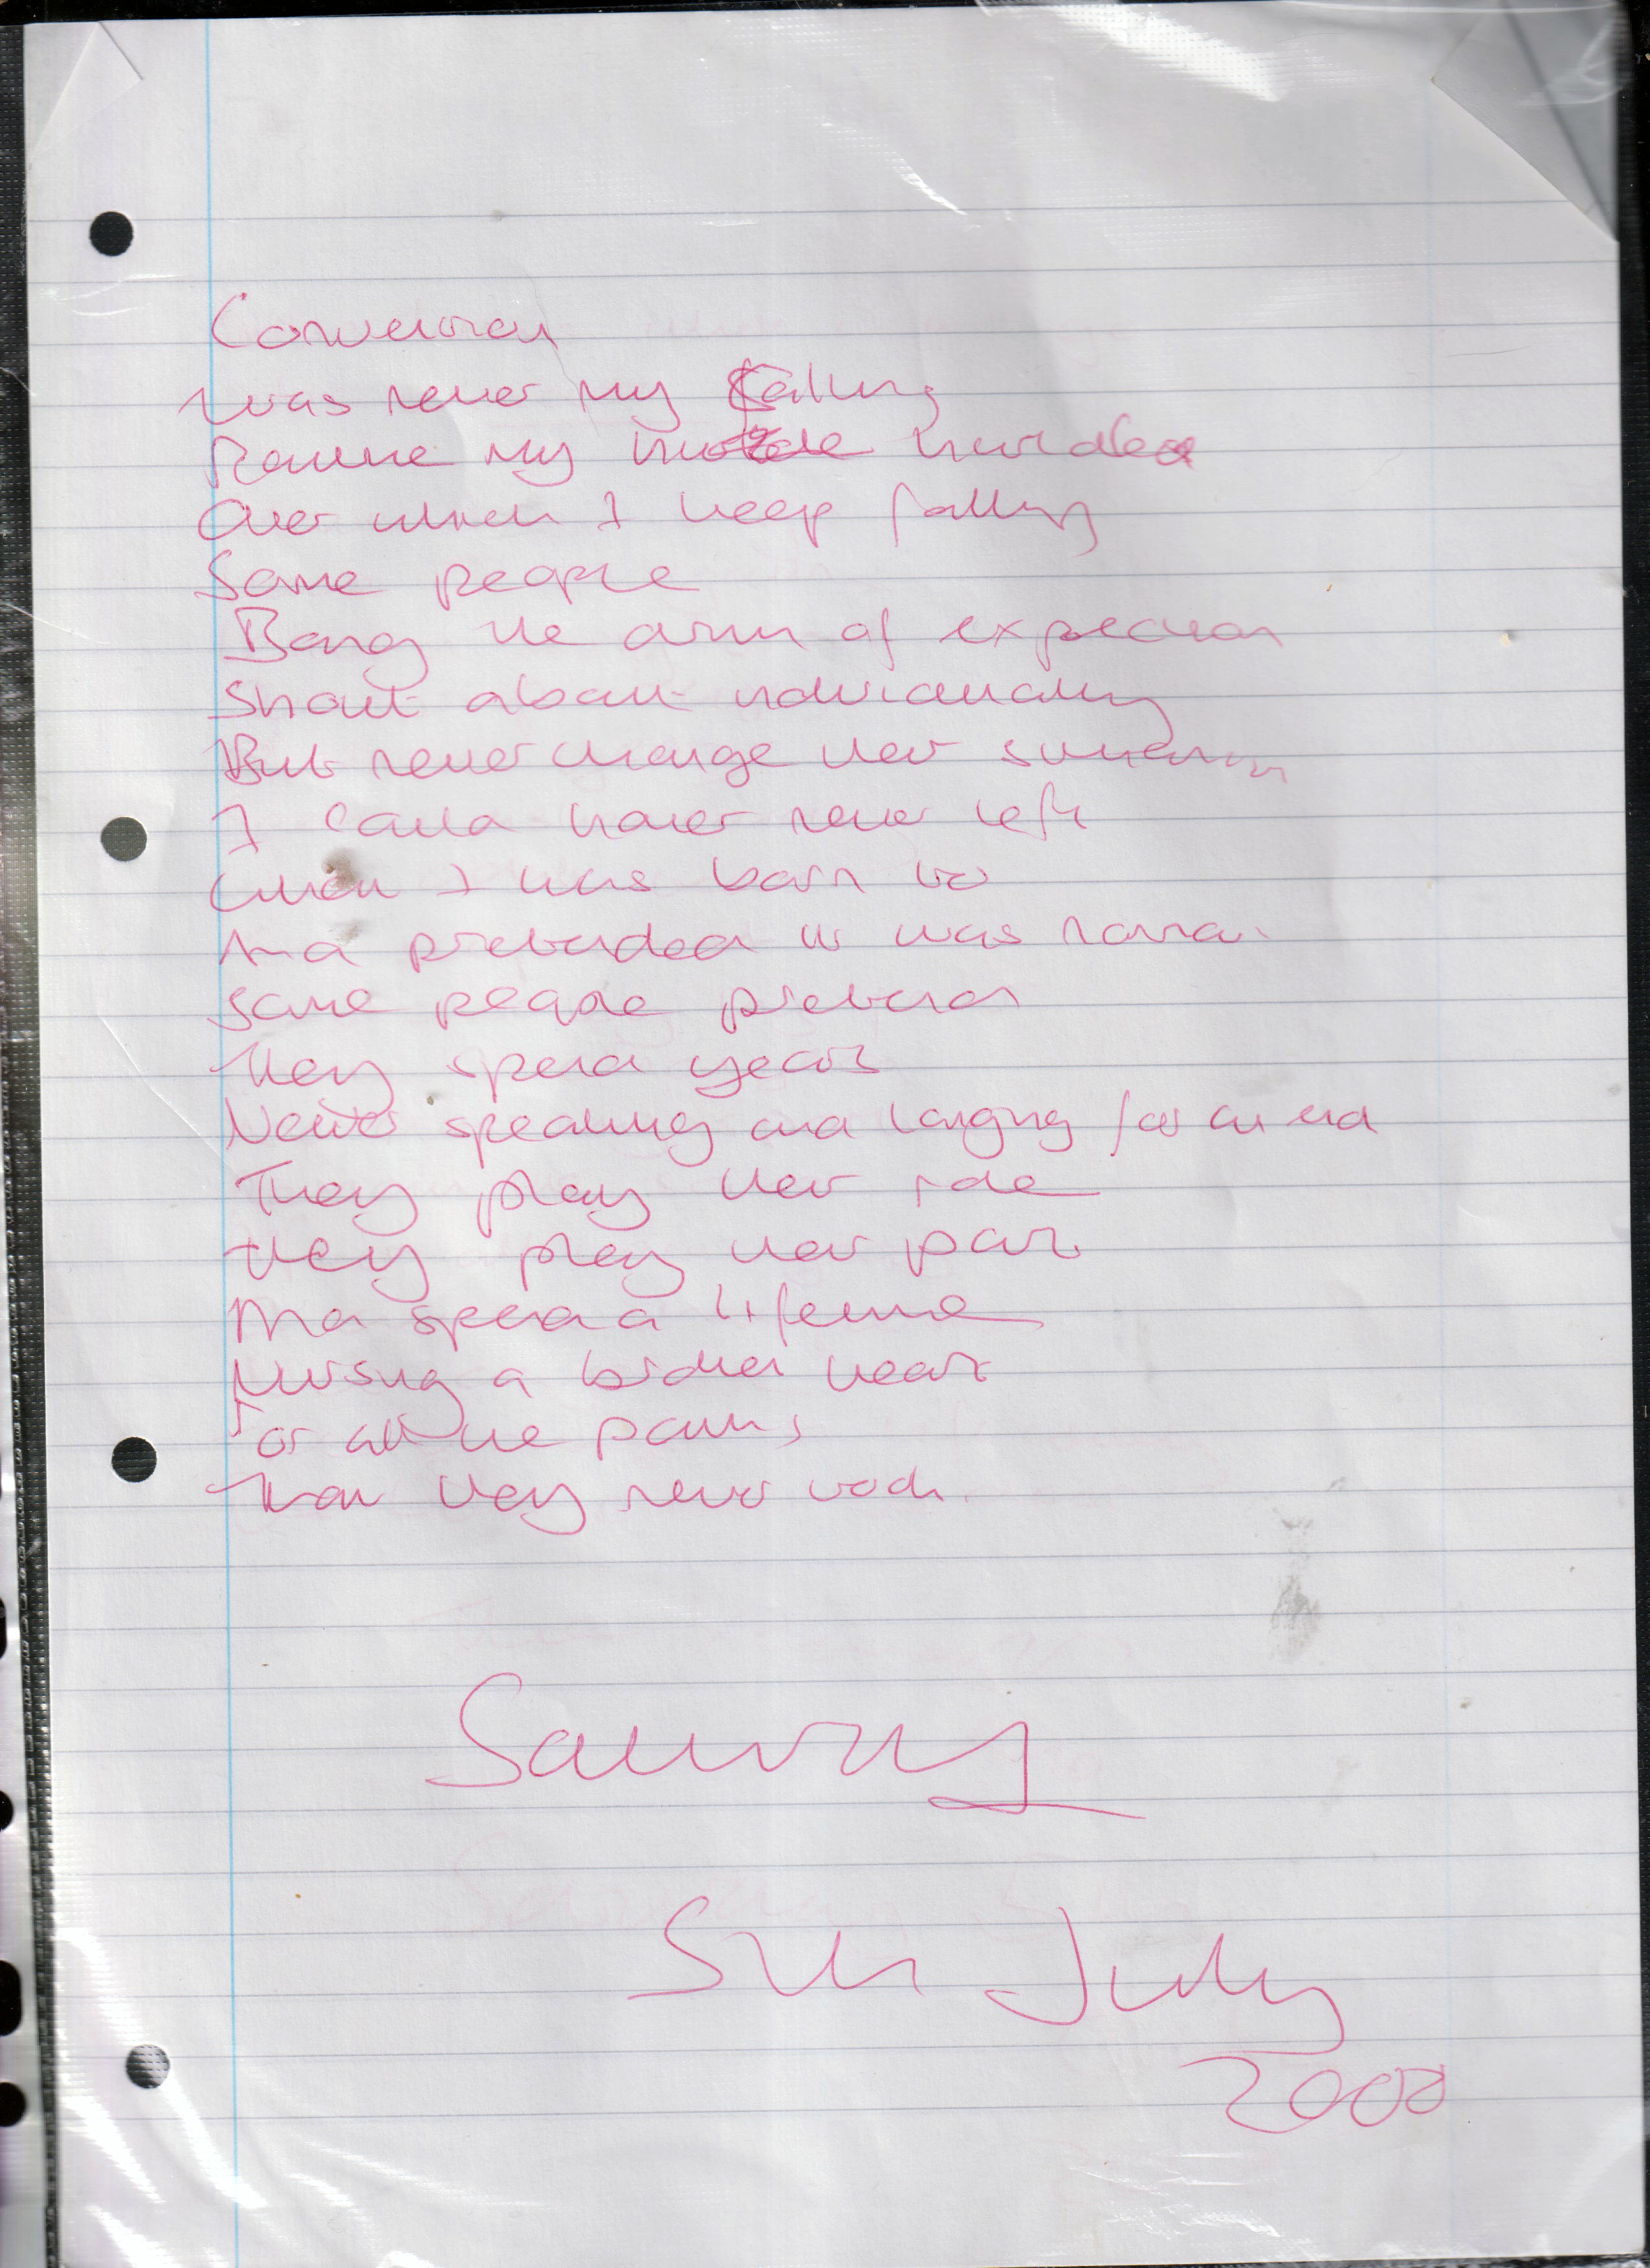 Convention
Was never my calling
Routine my hurdle
Over which I keep falling
Some people
Bang the drum of expression
Shout about individuality
But never change their situation
I could have never left
What I was born to
And pretended it was normal
Some people pretend
They spend years
Never speaking and longing for an end
They play their role
They play their part
And spend a lifetime
Nursing a broken heart
For all the paths
That they never took.
5th July
2000